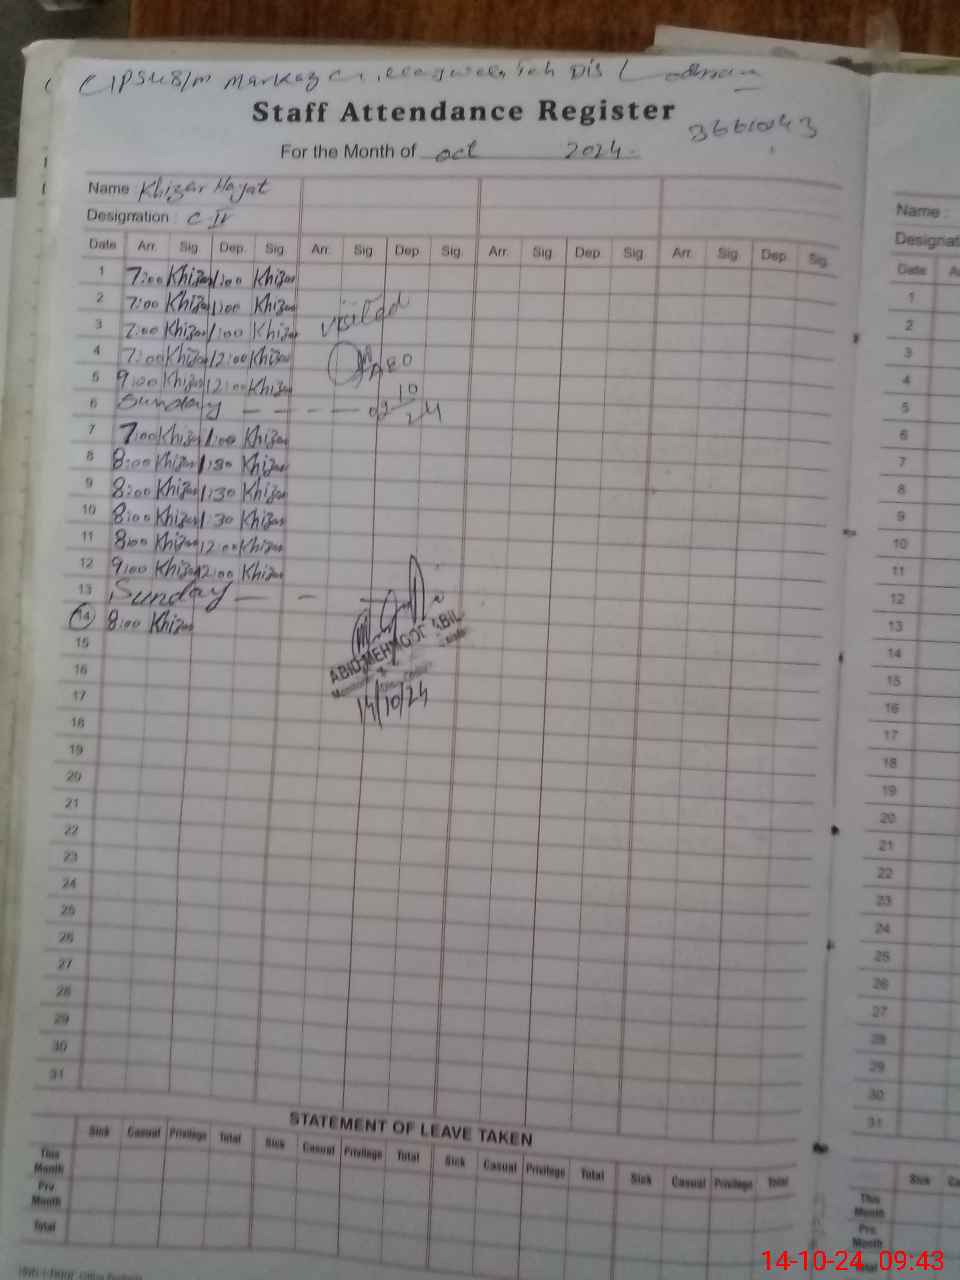 Markaz Dis Lodhran
Staff Attendance Register
36610043
For the Month of oct 2024
Name Khizar Hayat
Designation : C IV
Date Arr. Sig. Dep. Sig. Arr. Sig. Dep. Sig. Arr. Sig. Dep. Sig. Arr. Sig. Dep. Sig.
1 7:00 Khizar 1:00 Khizar
2 7:00 Khizar 1:00 Khizar
3 7:00 Khizar 1:00 Khizar visited
4 7:00 Khizar 12:00 Khizar AEO
5 9:00 Khizar 12:00 Khizar
6 Sunday - - - - 02 10 24
7 7:00 Khizar 1:00 Khizar
8 8:00 Khizar 1:30 Khizar
9 8:00 Khizar 1:30 Khizar
10 8:00 Khizar 1:30 Khizar
11 8:00 Khizar 12:00 Khizar
12 9:00 Khizar 12:00 Khizar
13 Sunday — - —
14 8:00 Khizar
15
16 ABID MEHMOOD
17 14/10/24
18
19
20
21
22
23
24
25
26
27
28
29
30
31
STATEMENT OF LEAVE TAKEN
Sick Casual Privilege Total Sick Casual Privilege Total Sick Casual Privilege Total Sick Casual Privilege Total
This Month
Prv. Month
Total
Name :
Designat
Date A
1
2
3
4
5
6
7
8
9
10
11
12
13
14
15
16
17
18
19
20
21
22
23
24
25
26
27
28
29
30
31
Sick Ca
This Month
Prv. Month
Total
14-10-24 09:43